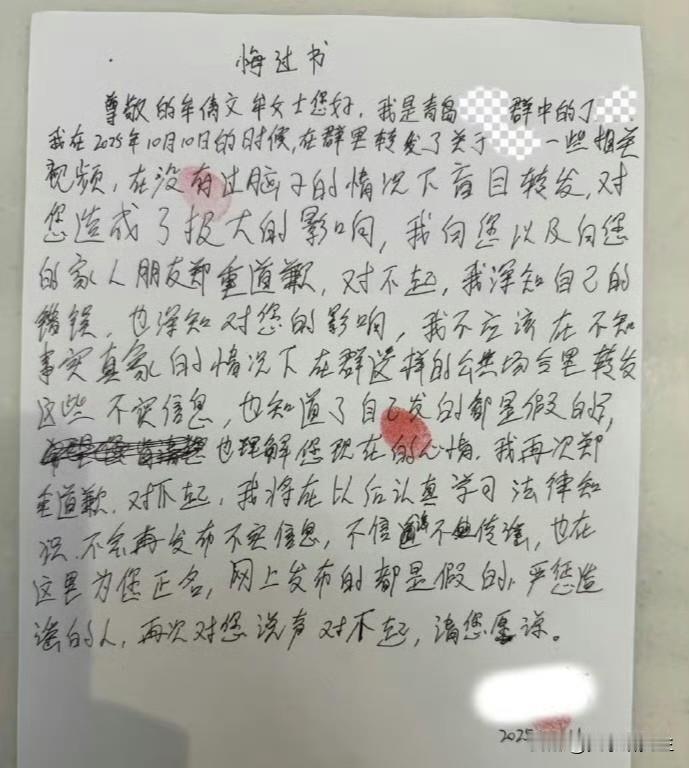 悔过书
尊敬的牟倩文牟女士您好,我是青岛 群中的丁
我在2025年10月10日的时候,在群里转发了关于 一些相关
视频,在没有过脑子的情况下盲目转发,对
您造成了极大的影响,我向您以及向您
的家人朋友郑重道歉,对不起,我深知自己的
错误,也深知对您的影响,我不应该在不知
事实真象的情况下在群这样的公共场合里转发
这些不实信息,也知道了自己发的都是假的,
也理解您现在的心情,我再次郑
重道歉,对不起,我将在以后认真学习法律知
识,不会再发布不实信息,不信谣不传谣,也在
这里为您正名,网上发布的都是假的,严惩造
谣的人,再次对您说声对不起,请您原谅。
2025 11